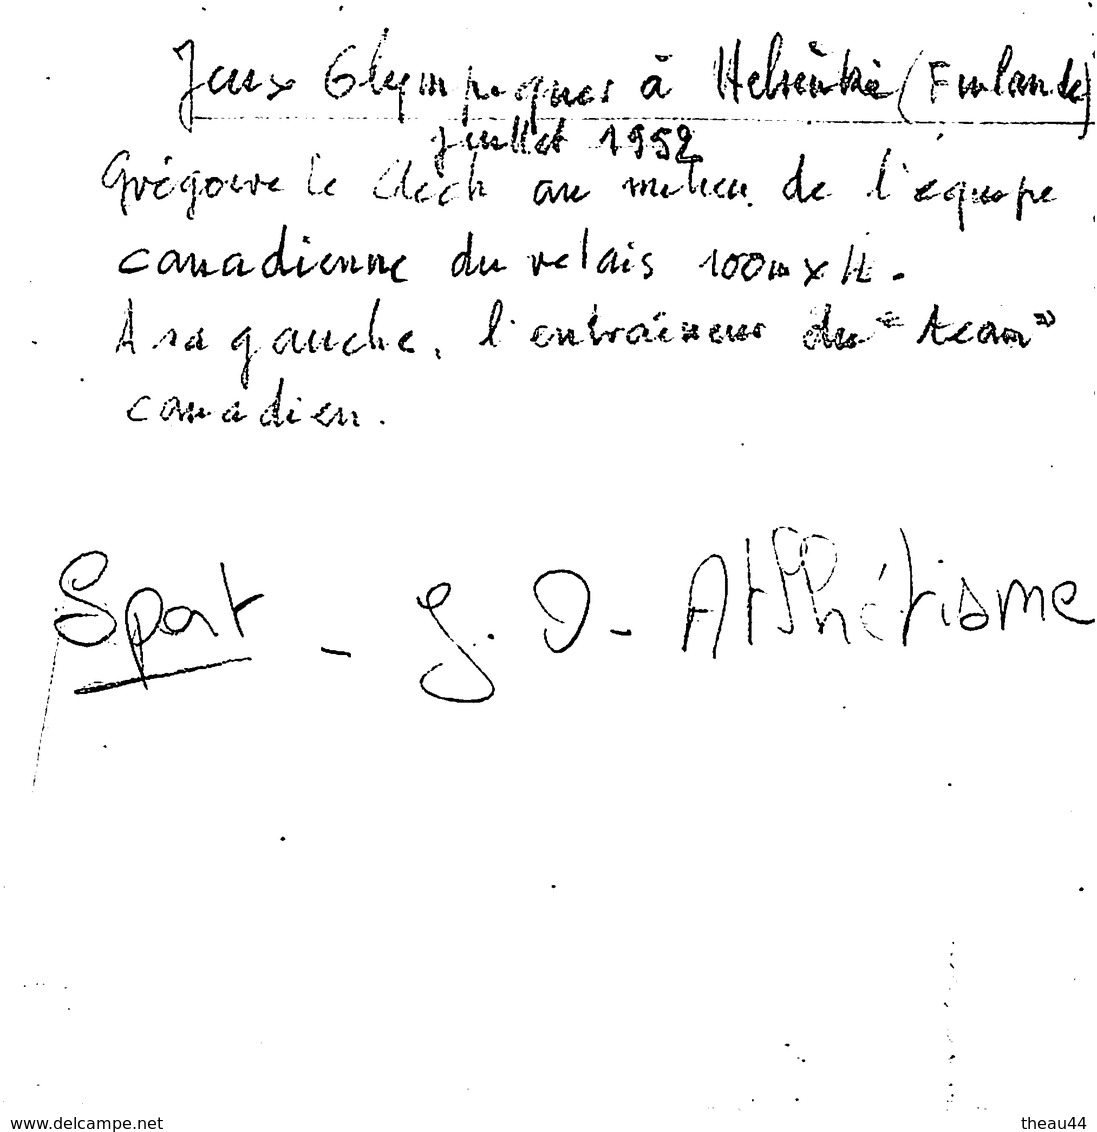 Jeux Olympiques à Helsinki (Finlande)
juillet 1952
Grégoire le Clech au milieu de l'équipe
canadienne du relais 100m x 4.
A sa gauche, l'entraîneur du "team"
canadien.
Sport - J. O - Athlétisme
www.delcampe.net
theau44